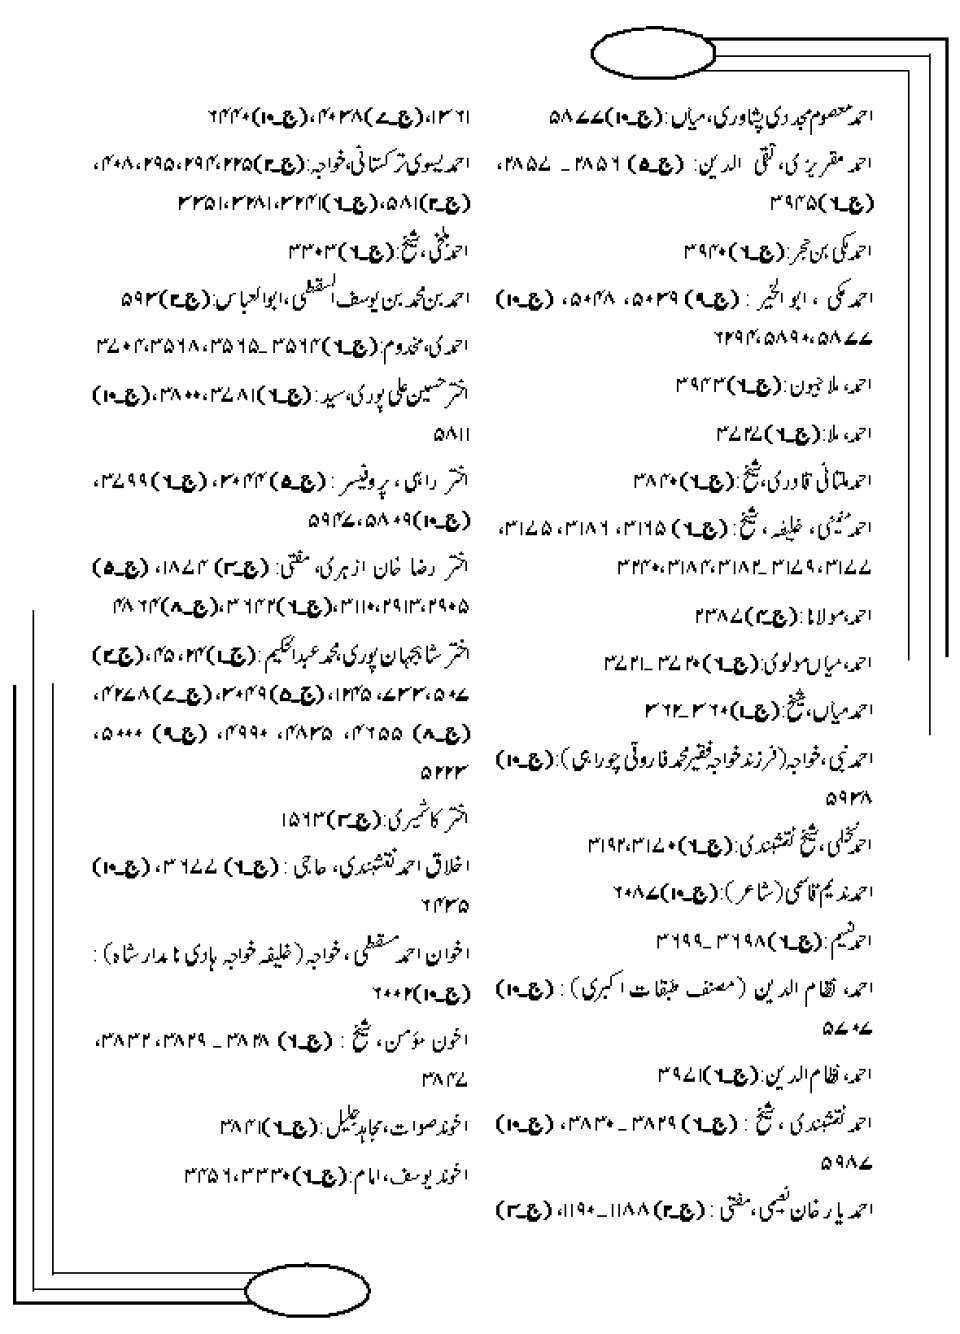 احمد معصوم مجددی پشاوری، میاں: (ج۔۱۰)۵۸۷۷
احمد مقریزی، تقی الدین: (ج۔۵) ۲۸۵۶ ـ ۲۸۵۷،
(ج۔۶)۳۹۴۵
احمد مکی بن حجر: (ج۔۶)۳۹۴۰
احمد مکی ، ابو الخیر : (ج۔۹) ۵۰۳۹، ۵۰۴۸، (ج۔۱۰)
۵۸۷۷،۵۸۹۰،۶۲۹۴
احمد، ملا جیون: (ج۔۶)۳۹۴۳
احمد، ملا: (ج۔۶)۳۷۲۷
احمد ملتانی قادری، شیخ: (ج۔۶)۳۸۴۰
احمد منینی، خلیفہ، شیخ: (ج۔۶) ۳۱۶۵، ۳۱۸۶، ۳۱۷۵،
۳۱۷۷،۳۱۷۹ـ۳۱۸۲،۳۱۸۴،۳۲۴۰
احمد، مولانا: (ج۔۴)۲۳۸۷
احمد، میاں مولوی: (ج۔۶)۳۷۲۰ـ۳۷۲۱
احمد میاں، شیخ: (ج۔۱)۳۶۰ـ۳۶۲
احمد نبی، خواجہ (فرزند خواجہ فقیر محمد فاروقی چوراہی): (ج۔۱۰)
۵۹۳۸
احمد نخلی، شیخ نقشبندی: (ج۔۶)۳۱۷۰،۳۱۹۲
احمد ندیم قاسمی (شاعر): (ج۔۱۰)۶۰۸۷
احمد نسیم: (ج۔۶)۳۶۹۸ـ۳۶۹۹
احمد، نظام الدین (مصنف طبقات اکبری) : (ج۔۱۰)
۵۷۰۷
احمد، نظام الدین: (ج۔۶)۳۹۷۱
احمد نقشبندی ، شیخ : (ج۔۶) ۳۸۲۹ـ۳۸۳۰، (ج۔۱۰)
۵۹۸۷
احمد یار خان نعیمی، مفتی : (ج۔۲) ۱۱۸۸ـ۱۱۹۰، (ج۔۳)
۱۳۶۱، (ج۔۷)۴۰۳۸، (ج۔۱۰)۶۴۴۰
احمد یسوی ترکستانی، خواجہ: (ج۔۲)۲۲۵،۲۹۴،۲۹۵،۴۰۸،
(ج۔۳)۵۸۱، (ج۔۶)۳۲۴۱،۳۲۸۱،۳۳۵۱
احمد یلخی، شیخ: (ج۔۶)۳۳۰۳
احمد بن محمد بن یوسف السقطی، ابو العباس: (ج۔۲)۵۹۳
احمدی، مخدوم: (ج۔۶)۳۵۶۴ـ۳۵۶۵،۳۵۶۸،۳۷۰۴
اختر حسین علی پوری، سید: (ج۔۶)۳۷۸۱،۳۸۰۰، (ج۔۱۰)
۵۸۱۱
اختر راہی ، پروفیسر : (ج۔۵)۳۰۴۴، (ج۔۶)۳۷۹۹،
(ج۔۱۰)۵۸۰۹،۵۹۴۷
اختر رضا خان ازہری، مفتی: (ج۔۳) ۱۸۷۴، (ج۔۵)
۲۹۰۵،۲۹۱۳،۳۱۱۰، (ج۔۶)۳۶۴۲، (ج۔۸)۴۸۶۴
اختر شاہجہان پوری، محمد عبدالحکیم: (ج۔۱)۲۴، ۴۵، (ج۔۲)
۵۰۷،۷۳۳،۱۲۴۵، (ج۔۵)۳۰۴۹، (ج۔۷)۴۲۷۸،
(ج۔۸) ۴۶۵۵، ۴۸۳۵، ۴۹۹۰، (ج۔۹) ۵۰۰۰،
۵۲۲۳
اختر کاشمیری: (ج۔۳)۱۵۶۳
اخلاق احمد نقشبندی، حاجی : (ج۔۶) ۳۶۷۷، (ج۔۱۰)
۶۴۳۵
اخوان احمد مسقطی ، خواجہ (خلیفہ خواجہ ہادی نامدار شاہ) :
(ج۔۱۰)۶۰۰۲
اخون مؤمن، شیخ : (ج۔۶) ۳۸۲۸ـ۳۸۲۹، ۳۸۳۲،
۳۸۴۷
اخوند صوات، مجاہد جلیل: (ج۔۶)۳۸۴۱
اخوند یوسف، امام: (ج۔۶)۳۳۳۰،۳۴۵۶